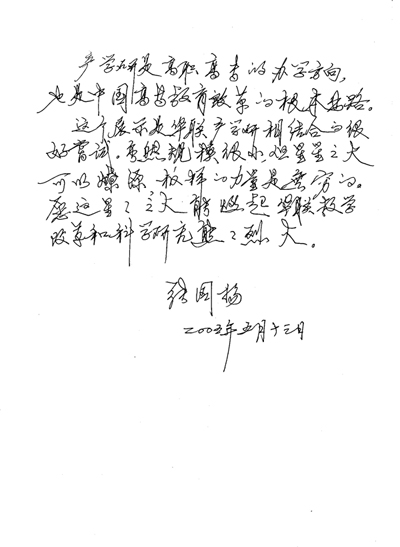 产学研是高职高专的办学方向,
也是中国高等教育改革的根本出路。
这个展示是华联产学研相结合的很
好尝试。虽然规模很小但星星之火
可以燎原,榜样的力量是无穷的。
愿这星星之火能燃起华联教学
改革和科学研究熊熊烈火。
张国扬
二00三年五月十三日